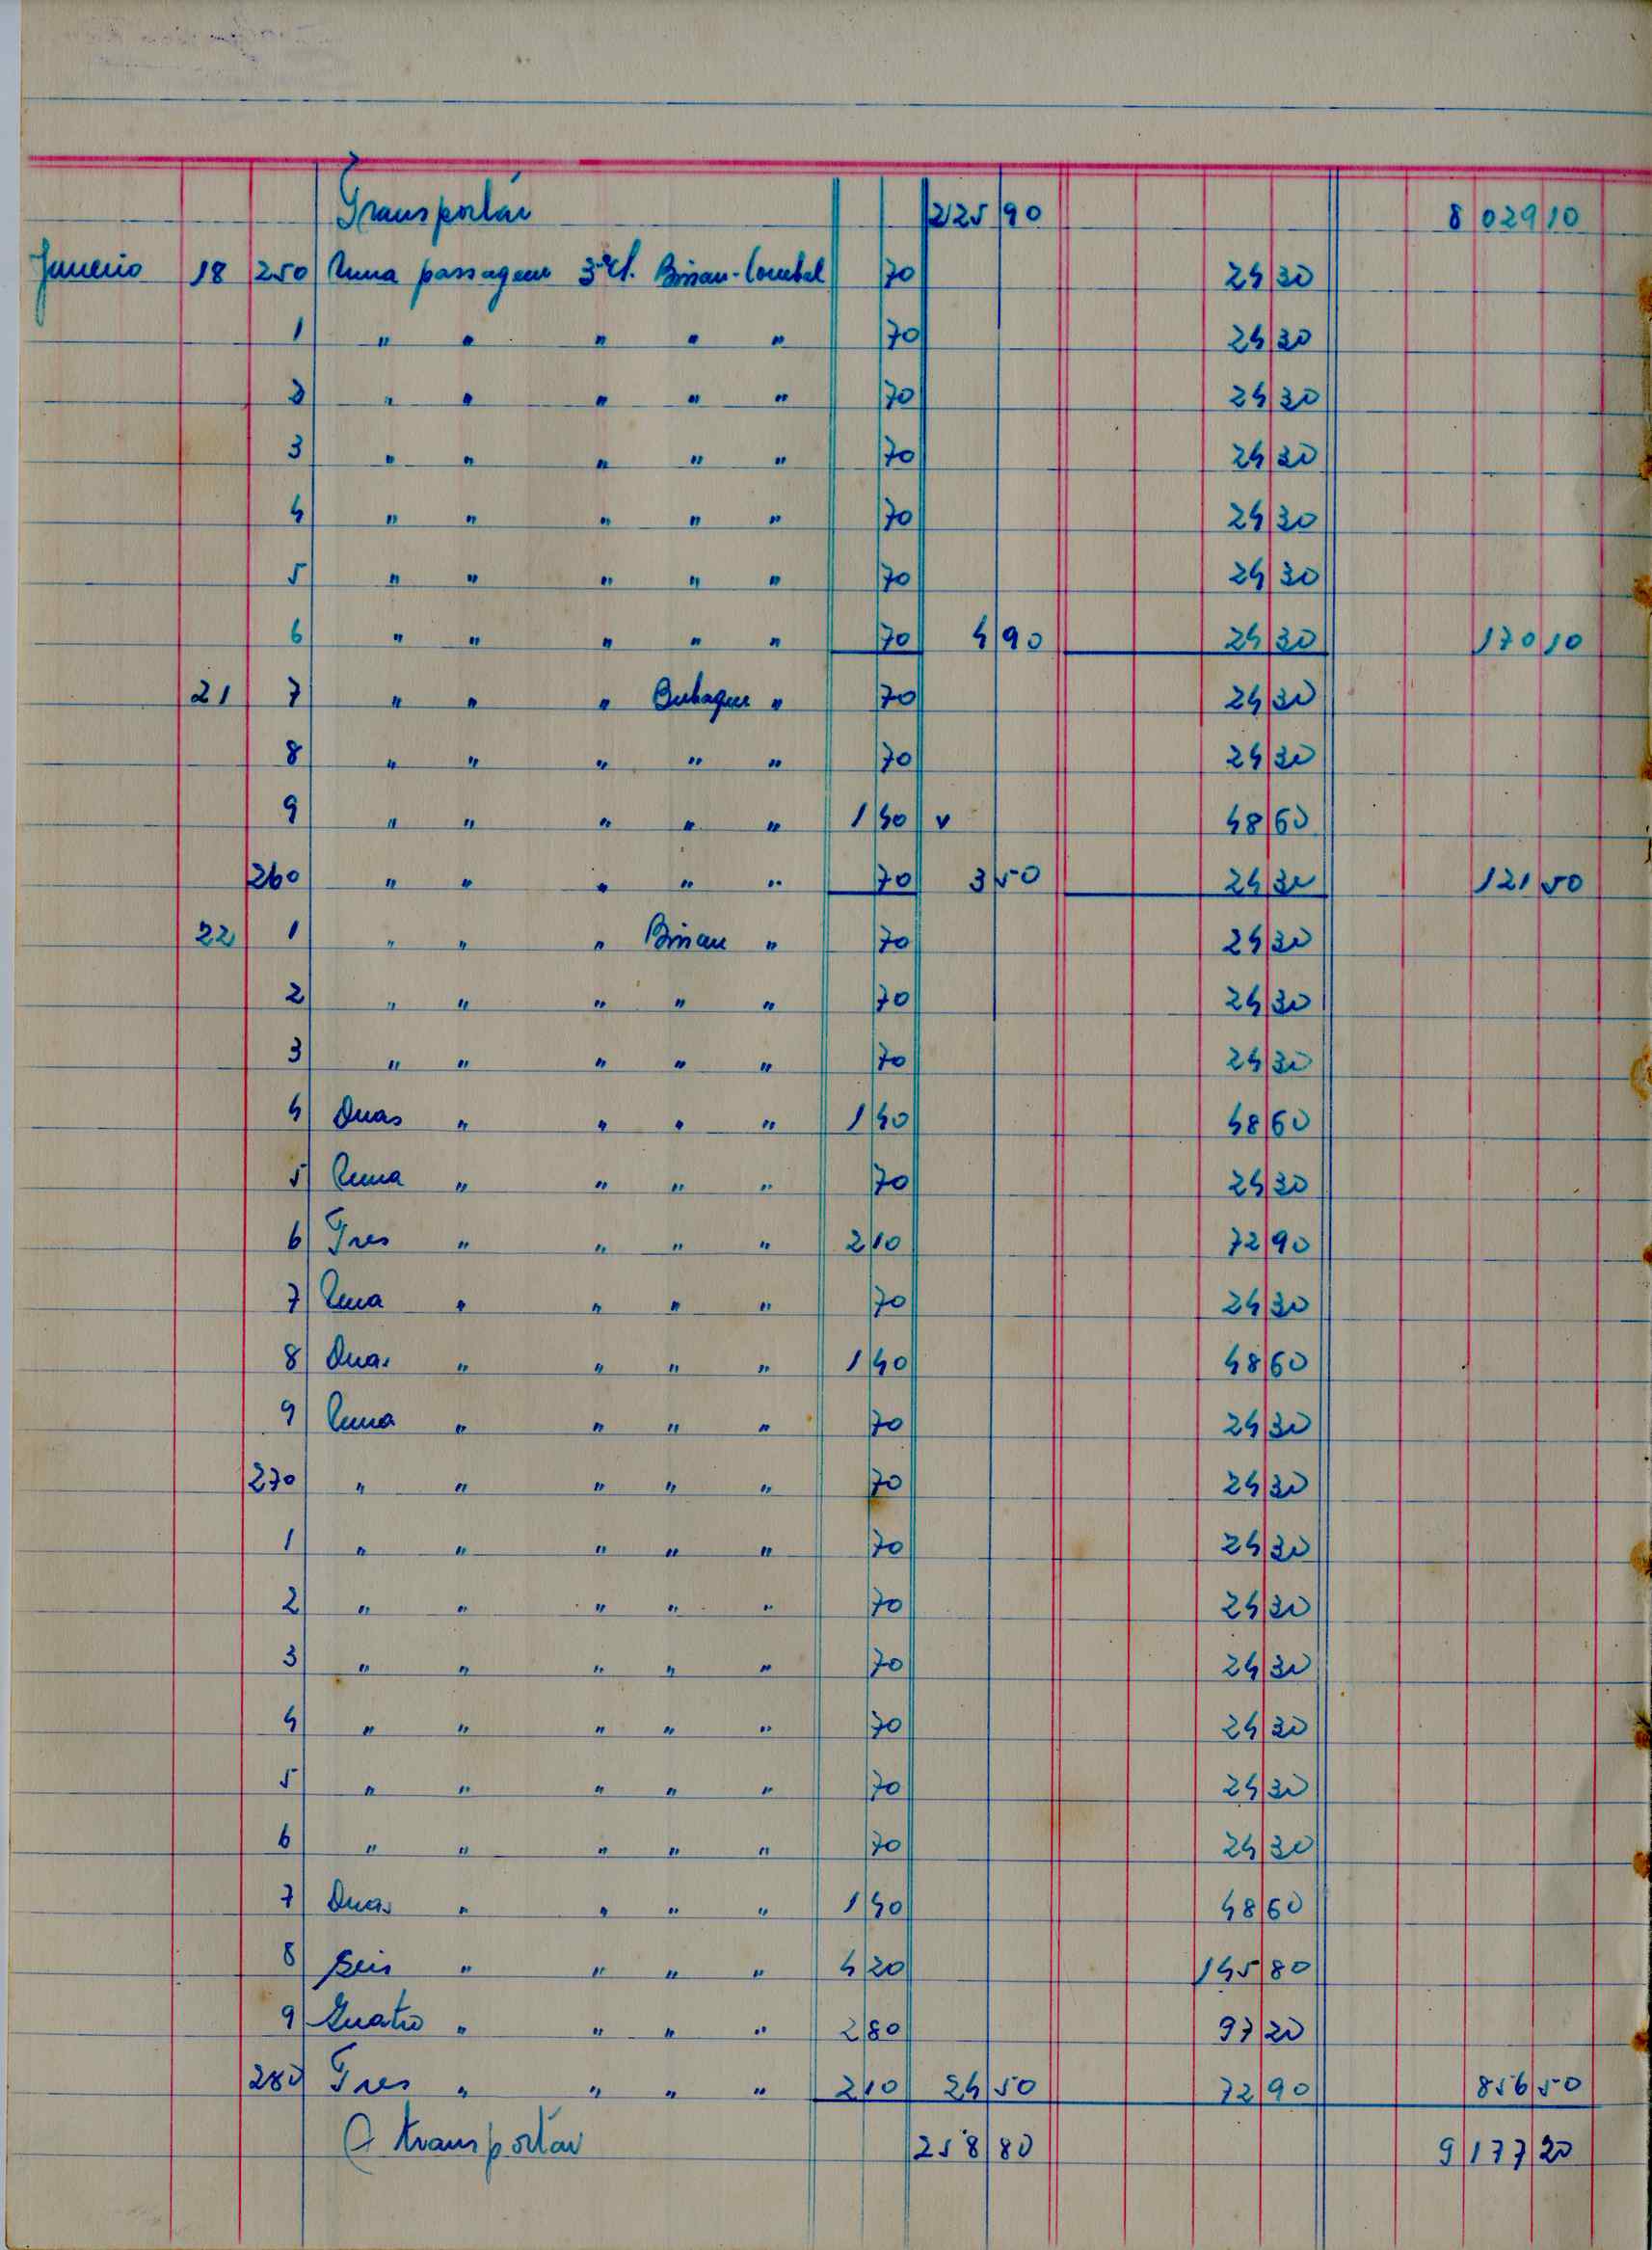 Transportar 225 90 8 029 10
Janeiro 18 250 Uma passagem 3ª cl. Bissau- 70 24 30
1 " " " " " 70 24 30
2 " " " " " 70 24 30
3 " " " " " 70 24 30
4 " " " " " 70 24 30
5 " " " " " 70 24 30
6 " " " " " 70 4 90 24 30 170 10
21 7 " " " Bubaque " 70 24 30
8 " " " " " 70 24 30
9 " " " " " 1 40 v 48 60
260 " " " " " 70 3 50 24 30 121 50
22 1 " " " Bissau " 70 24 30
2 " " " " " 70 24 30
3 " " " " " 70 24 30
4 Duas " " " " 1 40 48 60
5 Uma " " " " 70 24 30
6 Tres " " " " 2 10 72 90
7 Uma " " " " 70 24 30
8 Duas " " " " 1 40 48 60
9 Uma " " " " 70 24 30
270 " " " " " 70 24 30
1 " " " " " 70 24 30
2 " " " " " 70 24 30
3 " " " " " 70 24 30
4 " " " " " 70 24 30
5 " " " " " 70 24 30
6 " " " " " 70 24 30
7 Duas " " " " 1 40 48 60
8 Seis " " " " 4 20 145 80
9 Quatro " " " " 2 80 97 20
280 Tres " " " " 2 10 24 50 72 90 856 50
A transportar 258 80 9 177 20